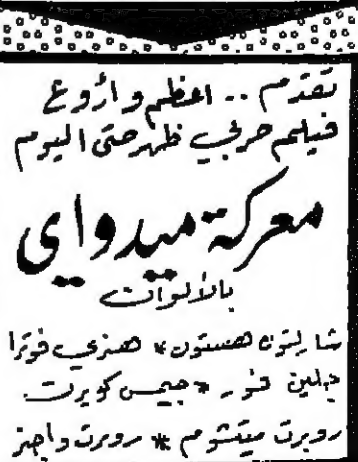 تقدم .. اعظم واروع
فيلم حربي ظهر حتى اليوم
معركة ميدواي
بالالوان
شارلتون هستون * هنري فوندا
جيمس كوبرن
روبرت ميتشوم * روبرت واجنر